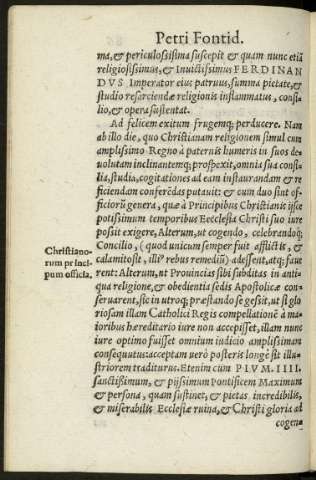 Petri Fontid.
ma, & periculosissima suscepit & quam nunc etiā
religiosissimus, & Inuictissimus FERDINAN
DVS Imperator eius patruus, summa pietate, &
studio resarciendæ religionis inflammatus, consi-
lio, & opera sustentat.
Ad felicem exitum frugemq; perducere. Nam
ab illo die, quo Christianam religionem simul cum
amplissimo Regno à paternis humeris in suos de-
uolutam inclinantemq; prospexit, omnia sua consi-
lia, studia, cogitationes ad eam instaurandam & re
ficiendam conferēdas putauit: & cum duo sint of-
ficiorū genera, quæ à Principibus Christianis ijsce
potissimum temporibus Eecclesia Christi suo iure
possit exigere, Alterum, ut cogendo, celebrandoq;
Concilio, (quod unicum semper fuit afflictis, &
calamitosit, illi' rebus remediū) adessent, atq; faue
rent: Alterum, ut Prouincias sibi subditas in anti-
qua religione, & obedientia sedis Apostolicæ con-
seruarent, sic in utroq; præstando se gessit, ut si glo
riosam illam Catholici Regis compellationē à ma-
ioribus hæreditario iure non accepisset, illam nunc
iure optimo fuisset omnium iudicio amplissimam
consequutus: acceptam uerò posteris longè sit illu-
striorem traditurus. Etenim cum PIVM. IIII.
sanctissimum, & pijssimum Pontificem Maximum
& persona, quam sustinet, & pietas incredibilis,
& miserabilis Ecclesiæ ruina, & Christi gloria ad
cogen-
Christiano-
rum princi
pum officia.